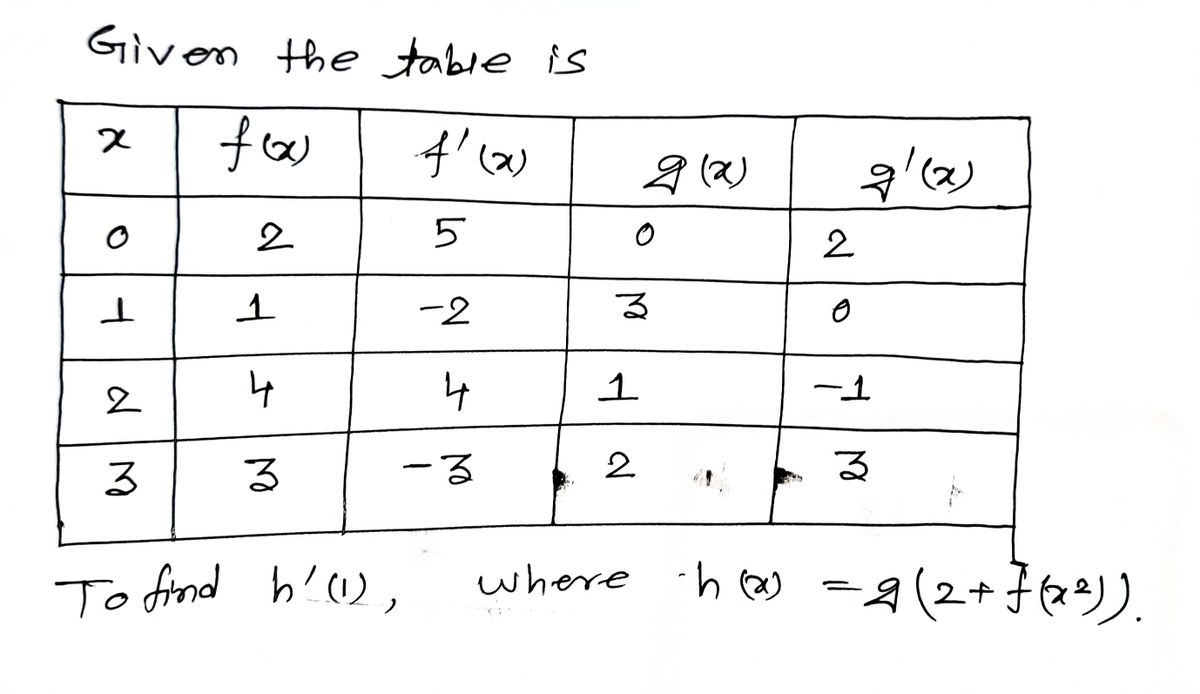 Given the table is
x f(x) f'(x) g(x) g'(x)
0 2 5 0 2
1 1 -2 3 0
2 4 4 1 -1
3 3 -3 2 3
To find h'(1), where h(x) = g(2+f(x²)).